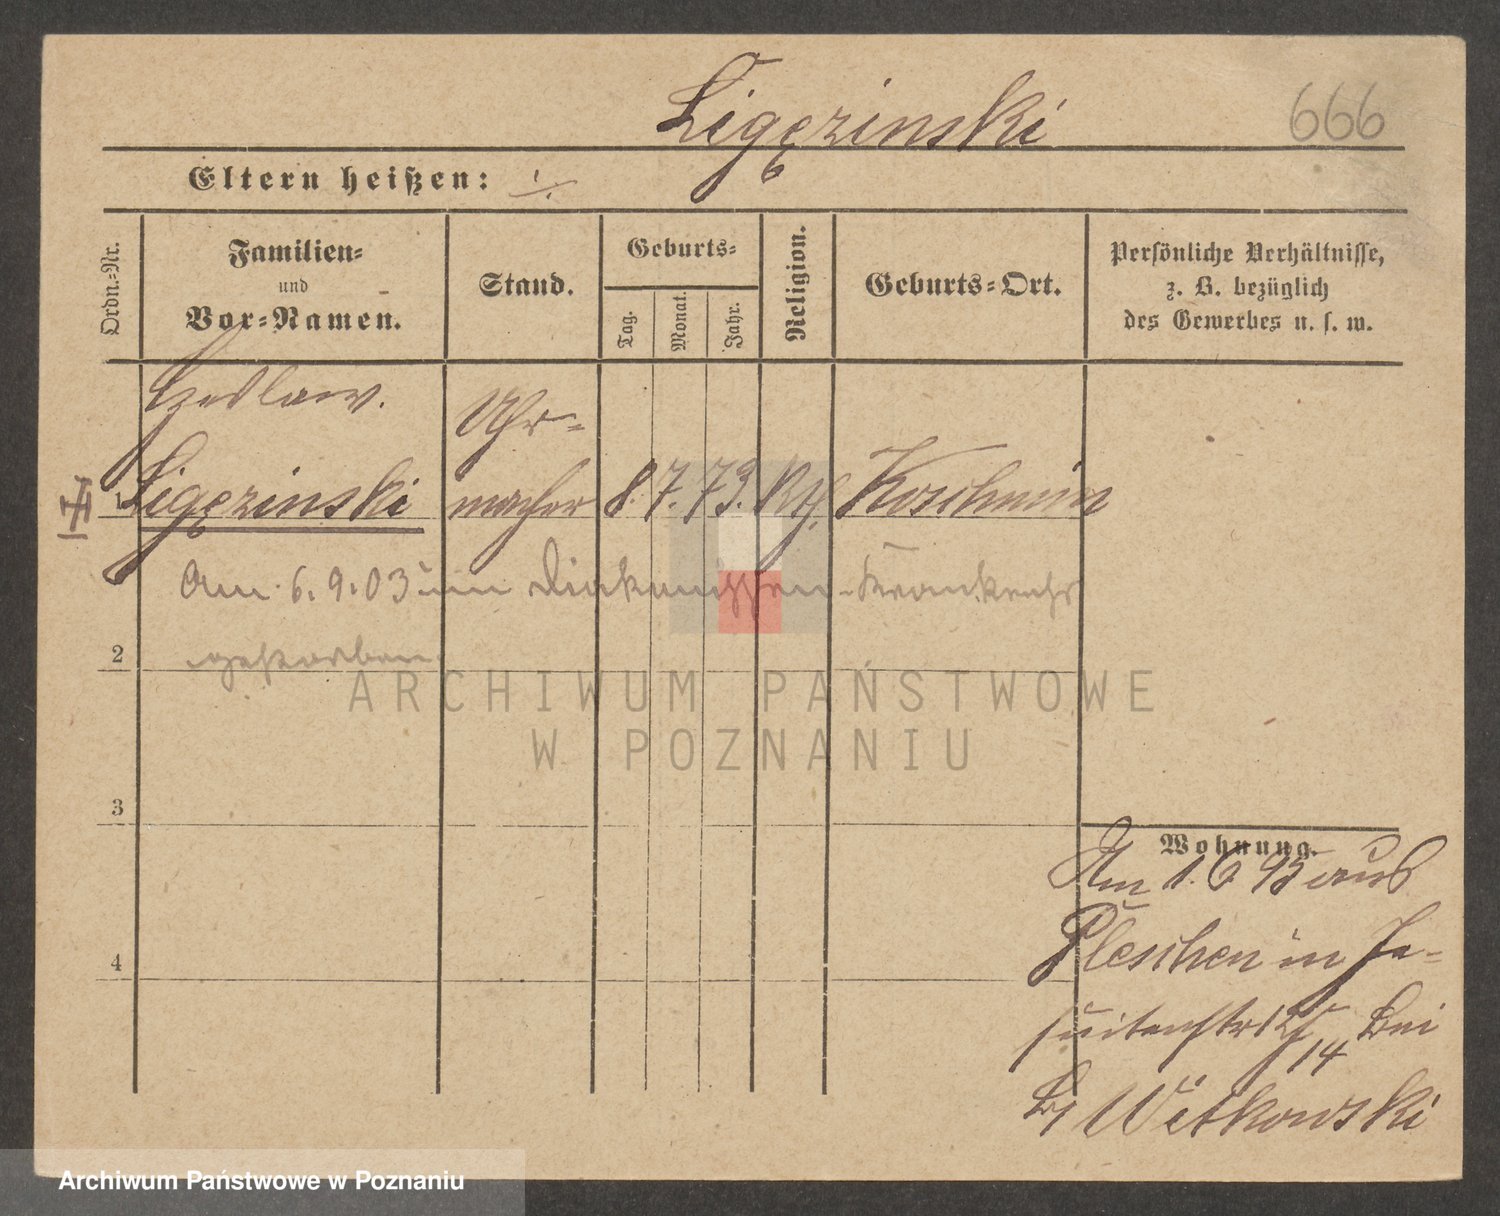 Ligęzinski
666
Eltern heißen: ./.
Ordn.-Nr.
Familien-
und
Vor-Namen.
Stand.
Geburts-
Tag.
Monat.
Jahr.
Religion.
Geburts-Ort.
Persönliche Verhältnisse,
z. B. bezüglich
des Gewerbes u. s. w.
Czeslaw.
Uhr-
1 Ligęzinski macher 8. 7. 73. Kth. Koschmin
Am 6.9.03 im Diakonissen-Krankenhs
gestorben
2
ARCHIWUM PAŃSTWOWE
W POZNANIU
3
Wohnung.
Am 1. 6 95 aus
Pleschen in Je-
4
suitenstr 14 bei
Witkowski
Archiwum Państwowe w Poznaniu